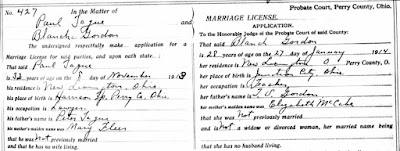 No. 427
In the Matter of
Paul Tague
and
Blanch Gordon
The undersigned respectfully make application for a
Marriage License for said parties, and upon oath state:
That said Paul Tague
is 32 years of age on the 8 day of November 1913
his residence is New Lexington, Ohio
his place of birth is Harrison Tp. Perry Co. Ohio
his occupation is Lawyer
his father's name is Peter Tague
his mother's maiden name was Mary
that he was Not previously married
and that he has no wife living.
Probate Court, Perry County, Ohio.
MARRIAGE LICENSE.
APPLICATION.
To the Honorable Judge of the Probate Court of said County:
That said Blanch Gordon
is 28 years of age on the 27 day of January 1914
her residence is New Lexington O Perry County, O.
her place of birth is Junction City Ohio
her occupation is Teacher
her father's name is Gordon
her mother's maiden name was Elizabeth McCabe
that she was Not previously married
and is Not a widow or divorced woman, her married name being
that she has no husband living.